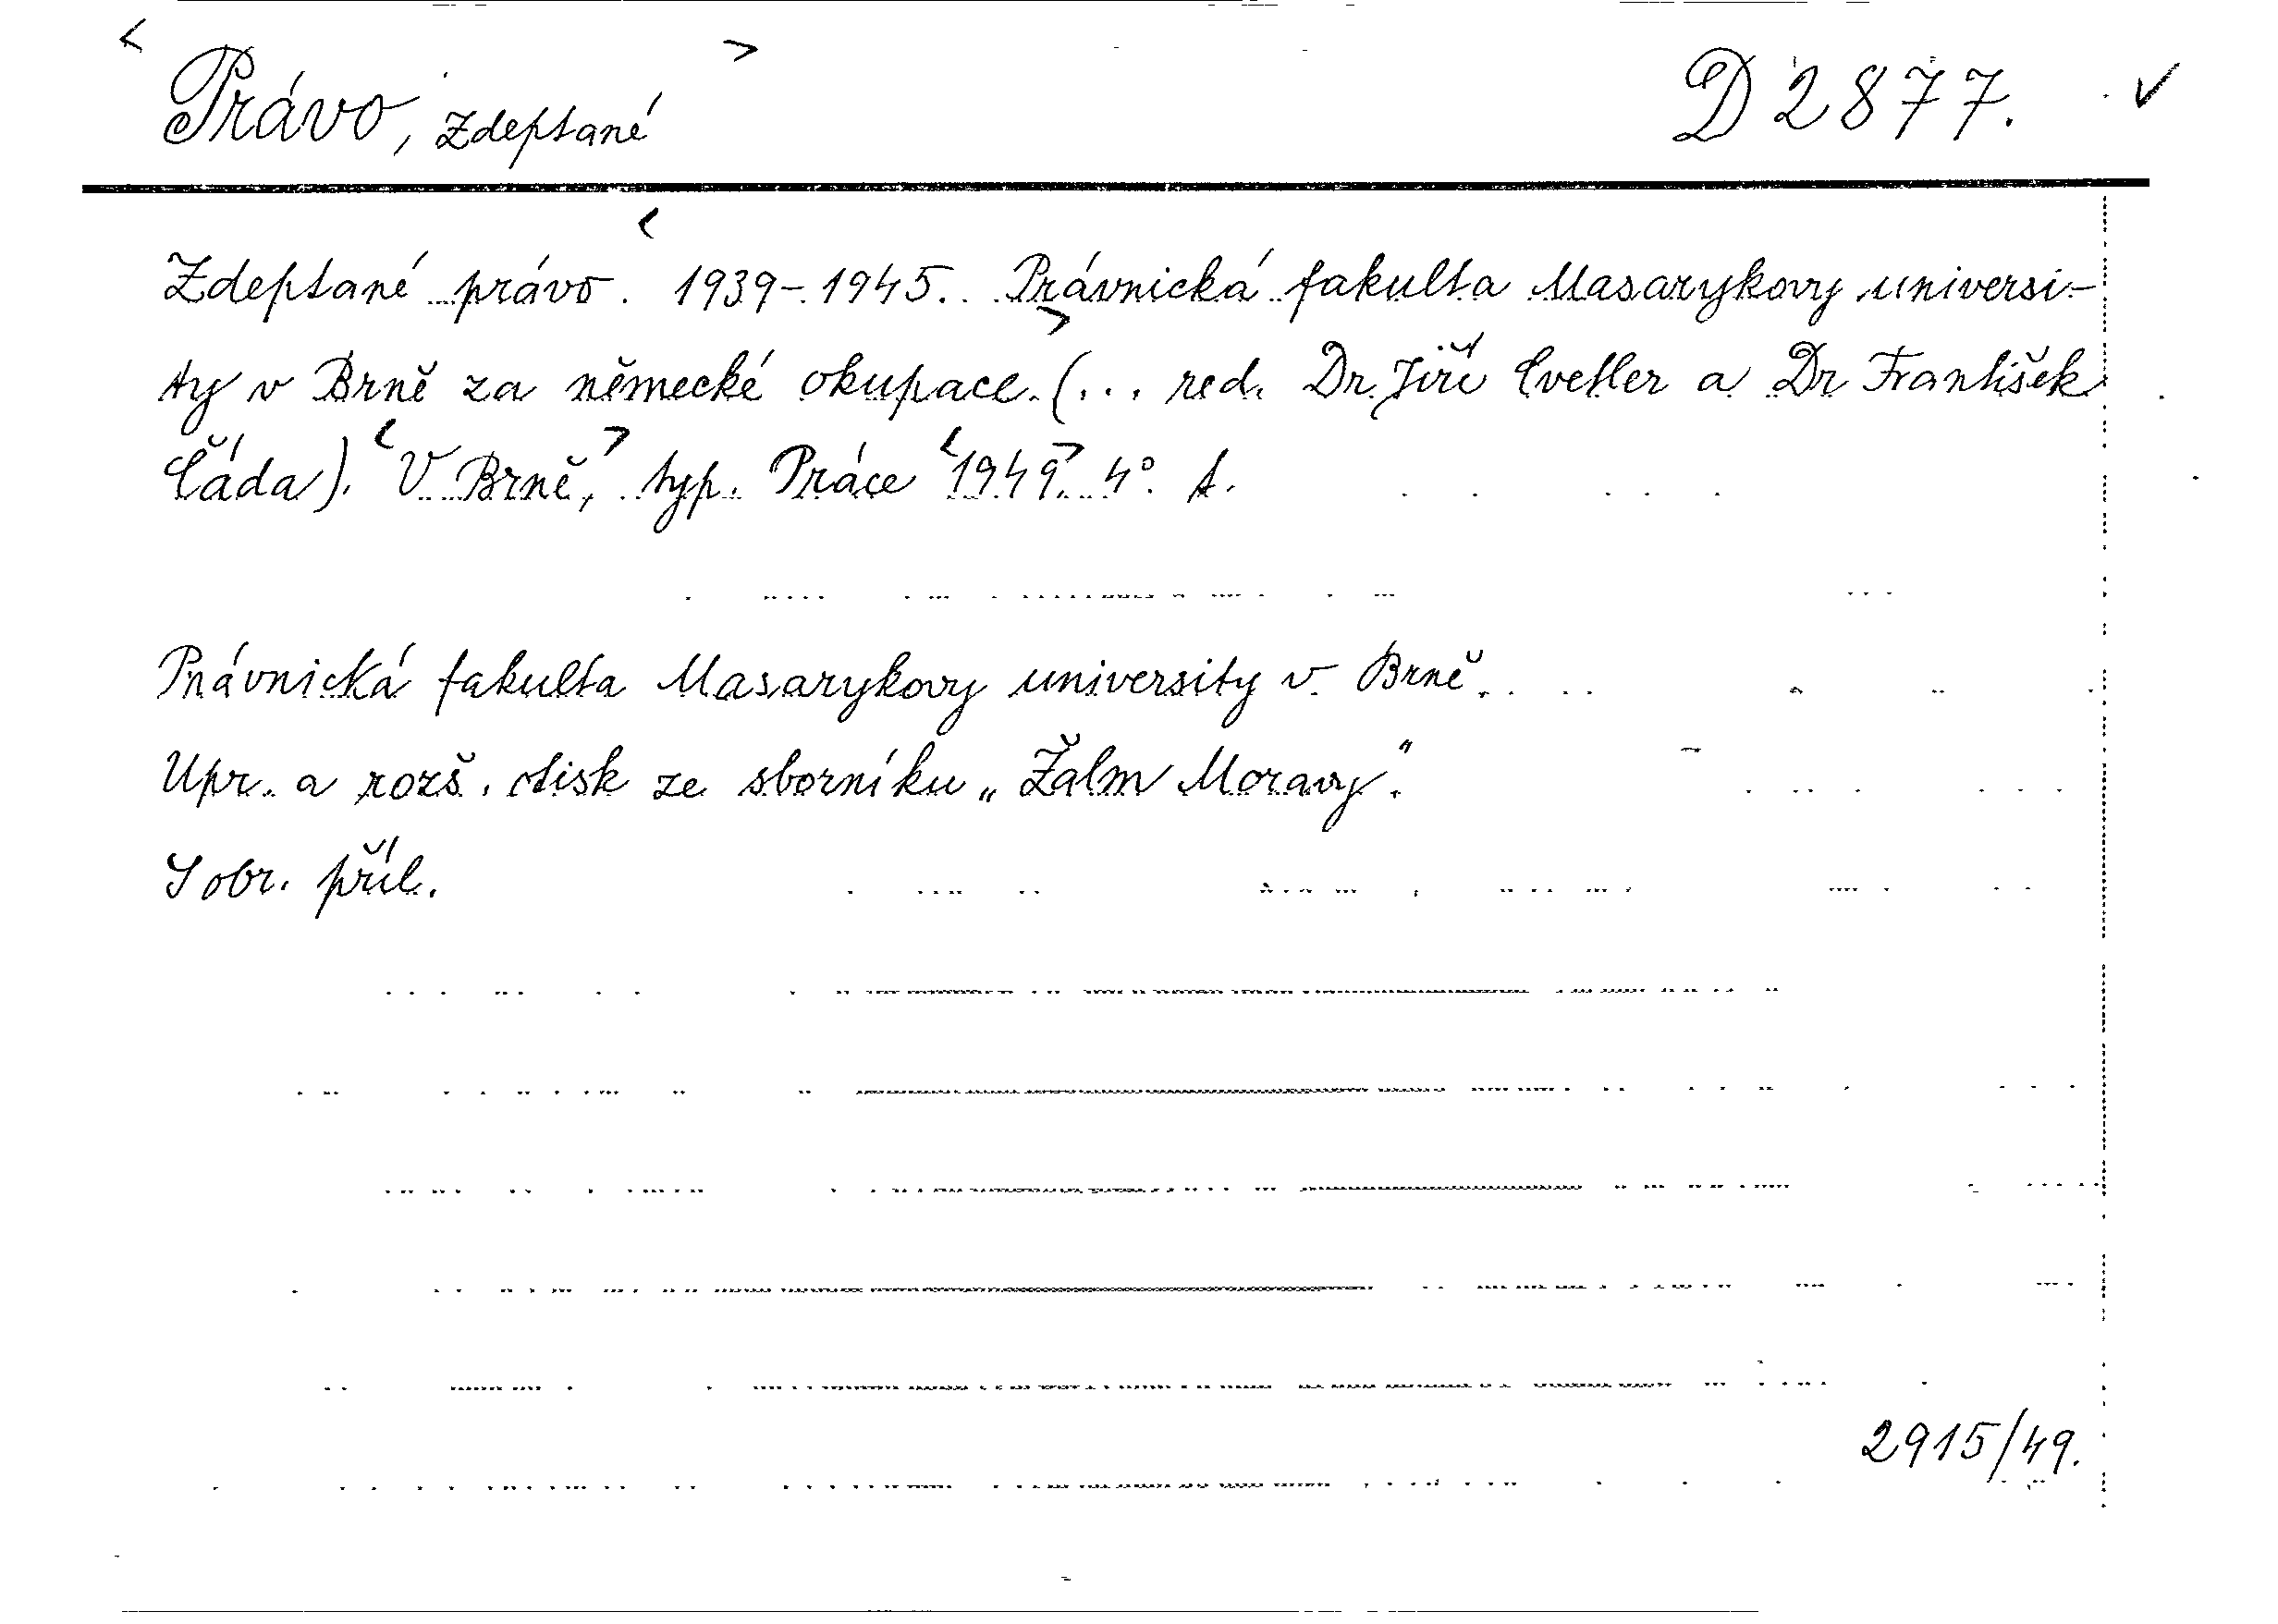 < Právo, Zdeptané > D 2877. ✓
Zdeptané právo. < 1939-1945. Právnická > fakulta Masarykovy universi-
ty v Brně za německé okupace. (... red. Dr Jiří Cvetler a Dr František
Čáda). < V Brně, > typ. Práce < 1949. > 4°. s.
Právnická fakulta Masarykovy university v Brně.
Upr. a rozš. otisk ze sborníku „Žalm Moravy".
S obr. příl.
2915/49.